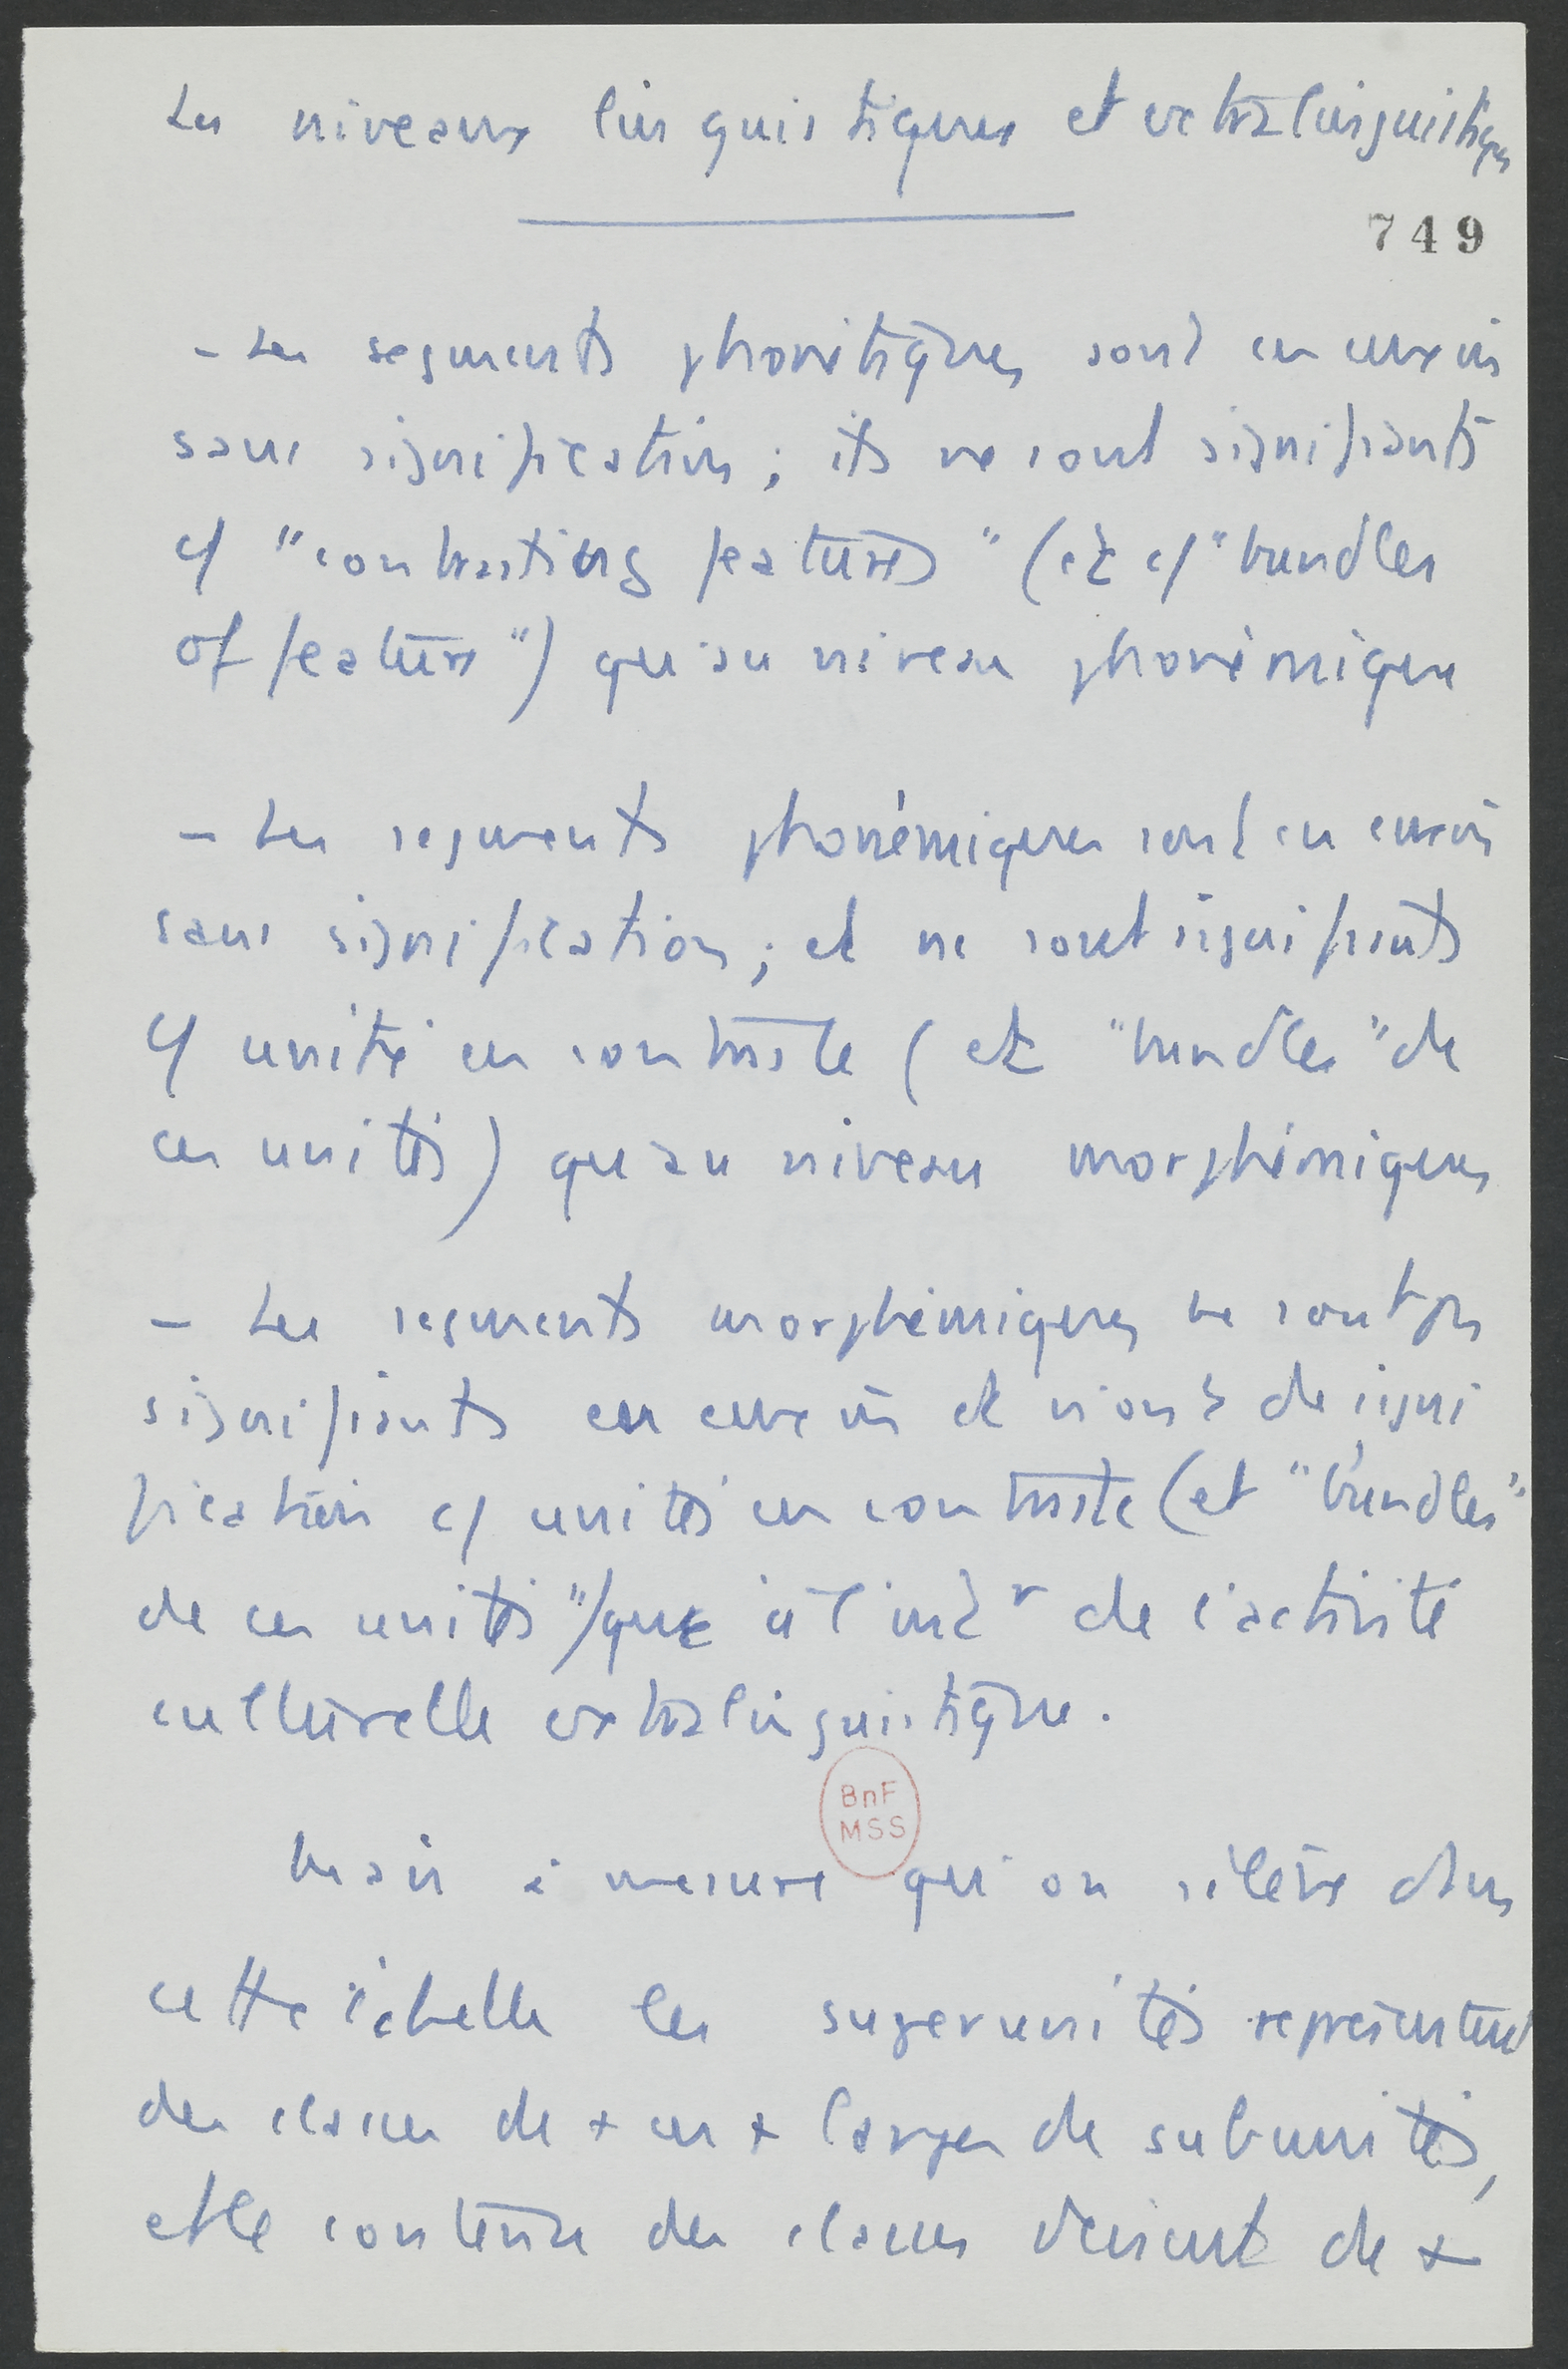 Les niveaux linguistiques et extralinguistiques
749
- Les segments phonétiques sont en eux-mêmes
sans signification ; ils ne sont signifiants
c/ "contrasting features" (et c/ "bundles
of features") qu'au niveau phonémique
- Les segments phonémiques sont en eux-mêmes
sans signification ; et ne sont signifiants
c/ unité en contraste (et "bundles" de
ces unités) qu'au niveau morphémique
- Les segments morphémiques ne sont pas
signifiants en eux-mêmes et n'ont de signi
fication c/ unités en contraste (et "bundles"
de ces unités") que à l' de l'activité
culturelle extralinguistique.
BnF
MSS
Mais à mesure qu'on s'élève dans
cette échelle les superunités représentent
des classes de + en + larges de subunités,
et le contenu des classes devient de +